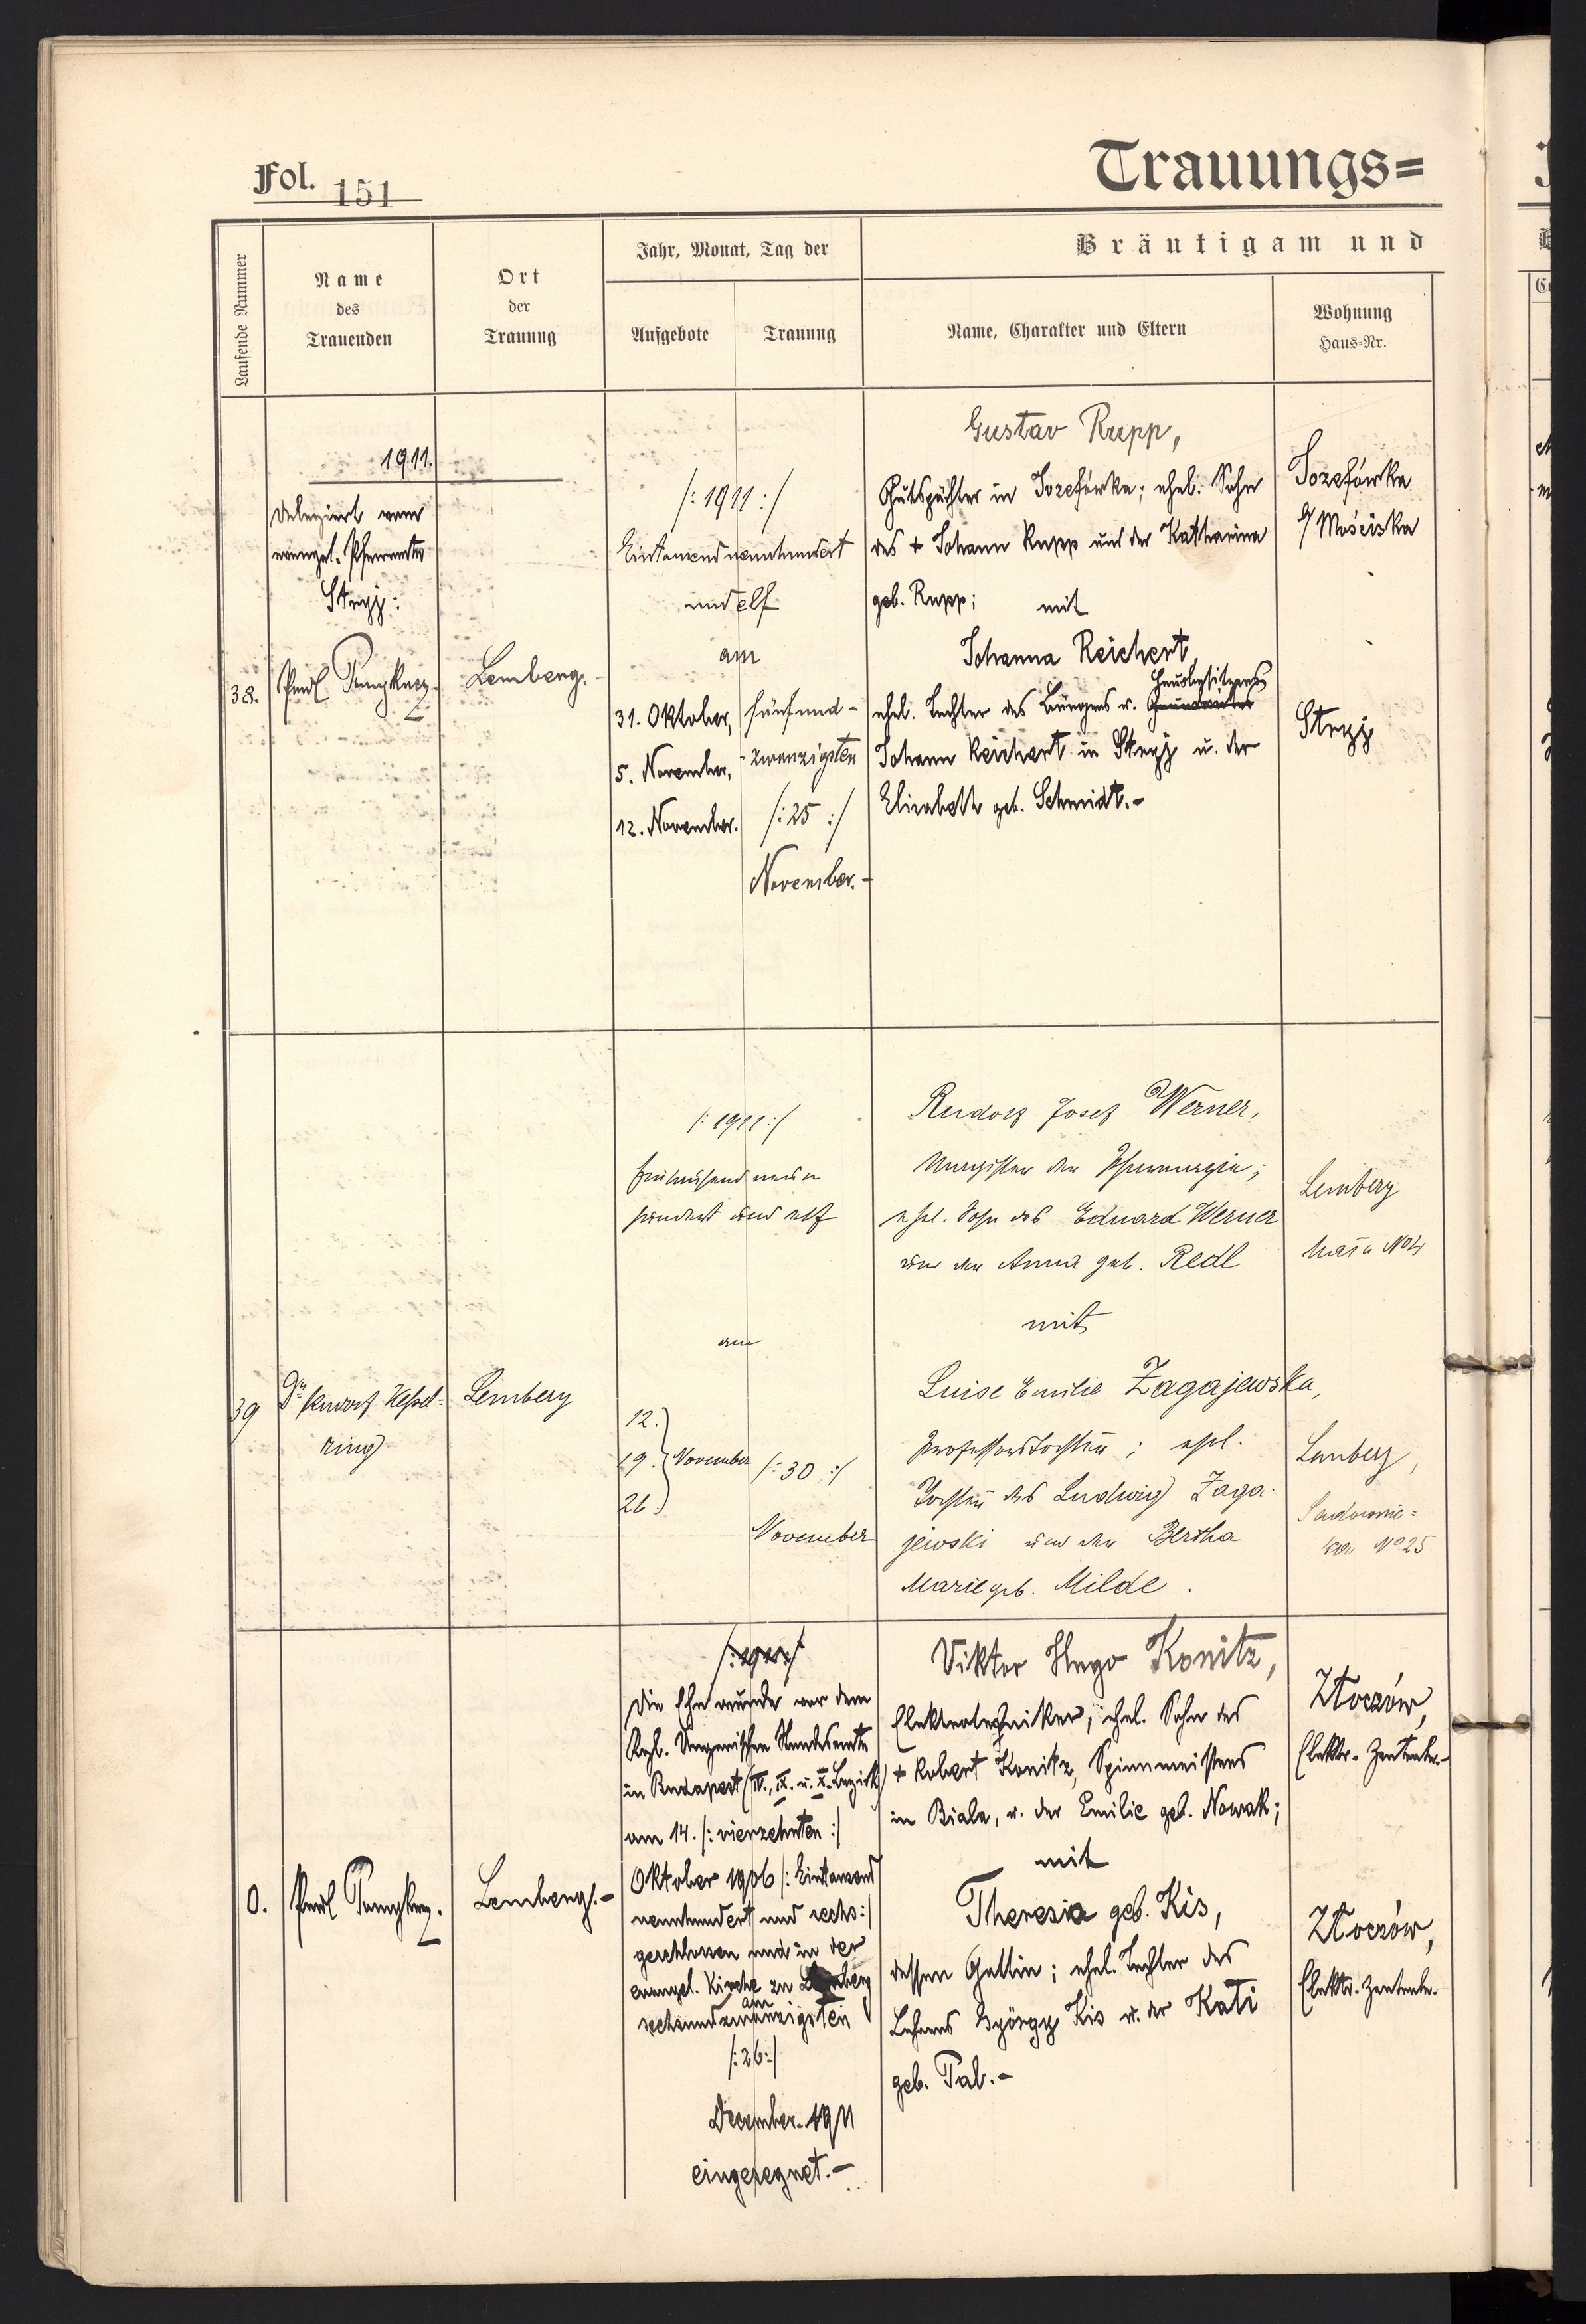 Fol. 151
Trauungs=
Laufende Nummer
Name
des
Trauenden
Ort
der
Trauung
Jahr, Monat, Tag der
Aufgebote
Trauung
Bräutigam und
Name, Charakter und Eltern
Wohnung
Haus=Nr.
1911.
Delegiert vom
evangel. Pfarramte
Stryj:
38.
Lemberg.
/: 1911 :/
Eintausendneunhundert
und elf
am
31. Oktober,
5. November,
12. November.
fünfund-
zwanzigsten
/: 25 :/
November.-
Gustav Rupp,
Gutspächter in Josefówka; ehel. Sohn
des + Johann Rupp und der Katharina
geb. Rupp; mit
Johanna Reichert,
Hausbesitzers
ehel. Tochter des Bürgers u.
Johann Reichert in Stryj u. der
Elisabeth geb. Schmidt.-
Josefówka
Mościska
Stryj
39
Dr Rudolf Kessel=
ring
Lemberg
/: 1911 :/
Eintausend neun
hundert und elf
am
12.
19. November
26.
/: 30 :/
November
Rudolf Josef Werner,
Magister der Pharmazie;
ehel. Sohn des Eduard Werner
und der Anna geb. Redl
mit
Luise Emilie Zagajewska,
Professorstochter; ehel.
Tochter des Ludwig Zaga-
jewski und der Bertha
Marie geb. Milde.
Lemberg
No 4
Lemberg,
No 25
0.
Lemberg.-
/: 1911 :/
Die Ehe wurde vor dem
Kgl. Ungarischen Standesamte
in Budapest (IV., IX. u. X. Bezirk)
am 14. /: vierzehnten :/
Oktober 1906 /: Eintausend
neunhundert und sechs :/
geschlossen und in der
evangel. Kirche zu Lemberg
am
sechsundzwanzigsten
/: 26 :/
December 1911
eingesegnet.-
Viktor Hugo Konitz,
Elektrotechniker; ehel. Sohn des
+ Robert Konitz, Spinnmeisters
in Biala, u. der Emilie geb. Nowak;
mit
Theresia geb. Kis,
dessen Gattin; ehel. Tochter des
Lehrers György Kis u. der Kati
geb. Pab.-
Złoczów,
Elektr. Zentrale.-
Złoczów,
Elektr. Zentrale.